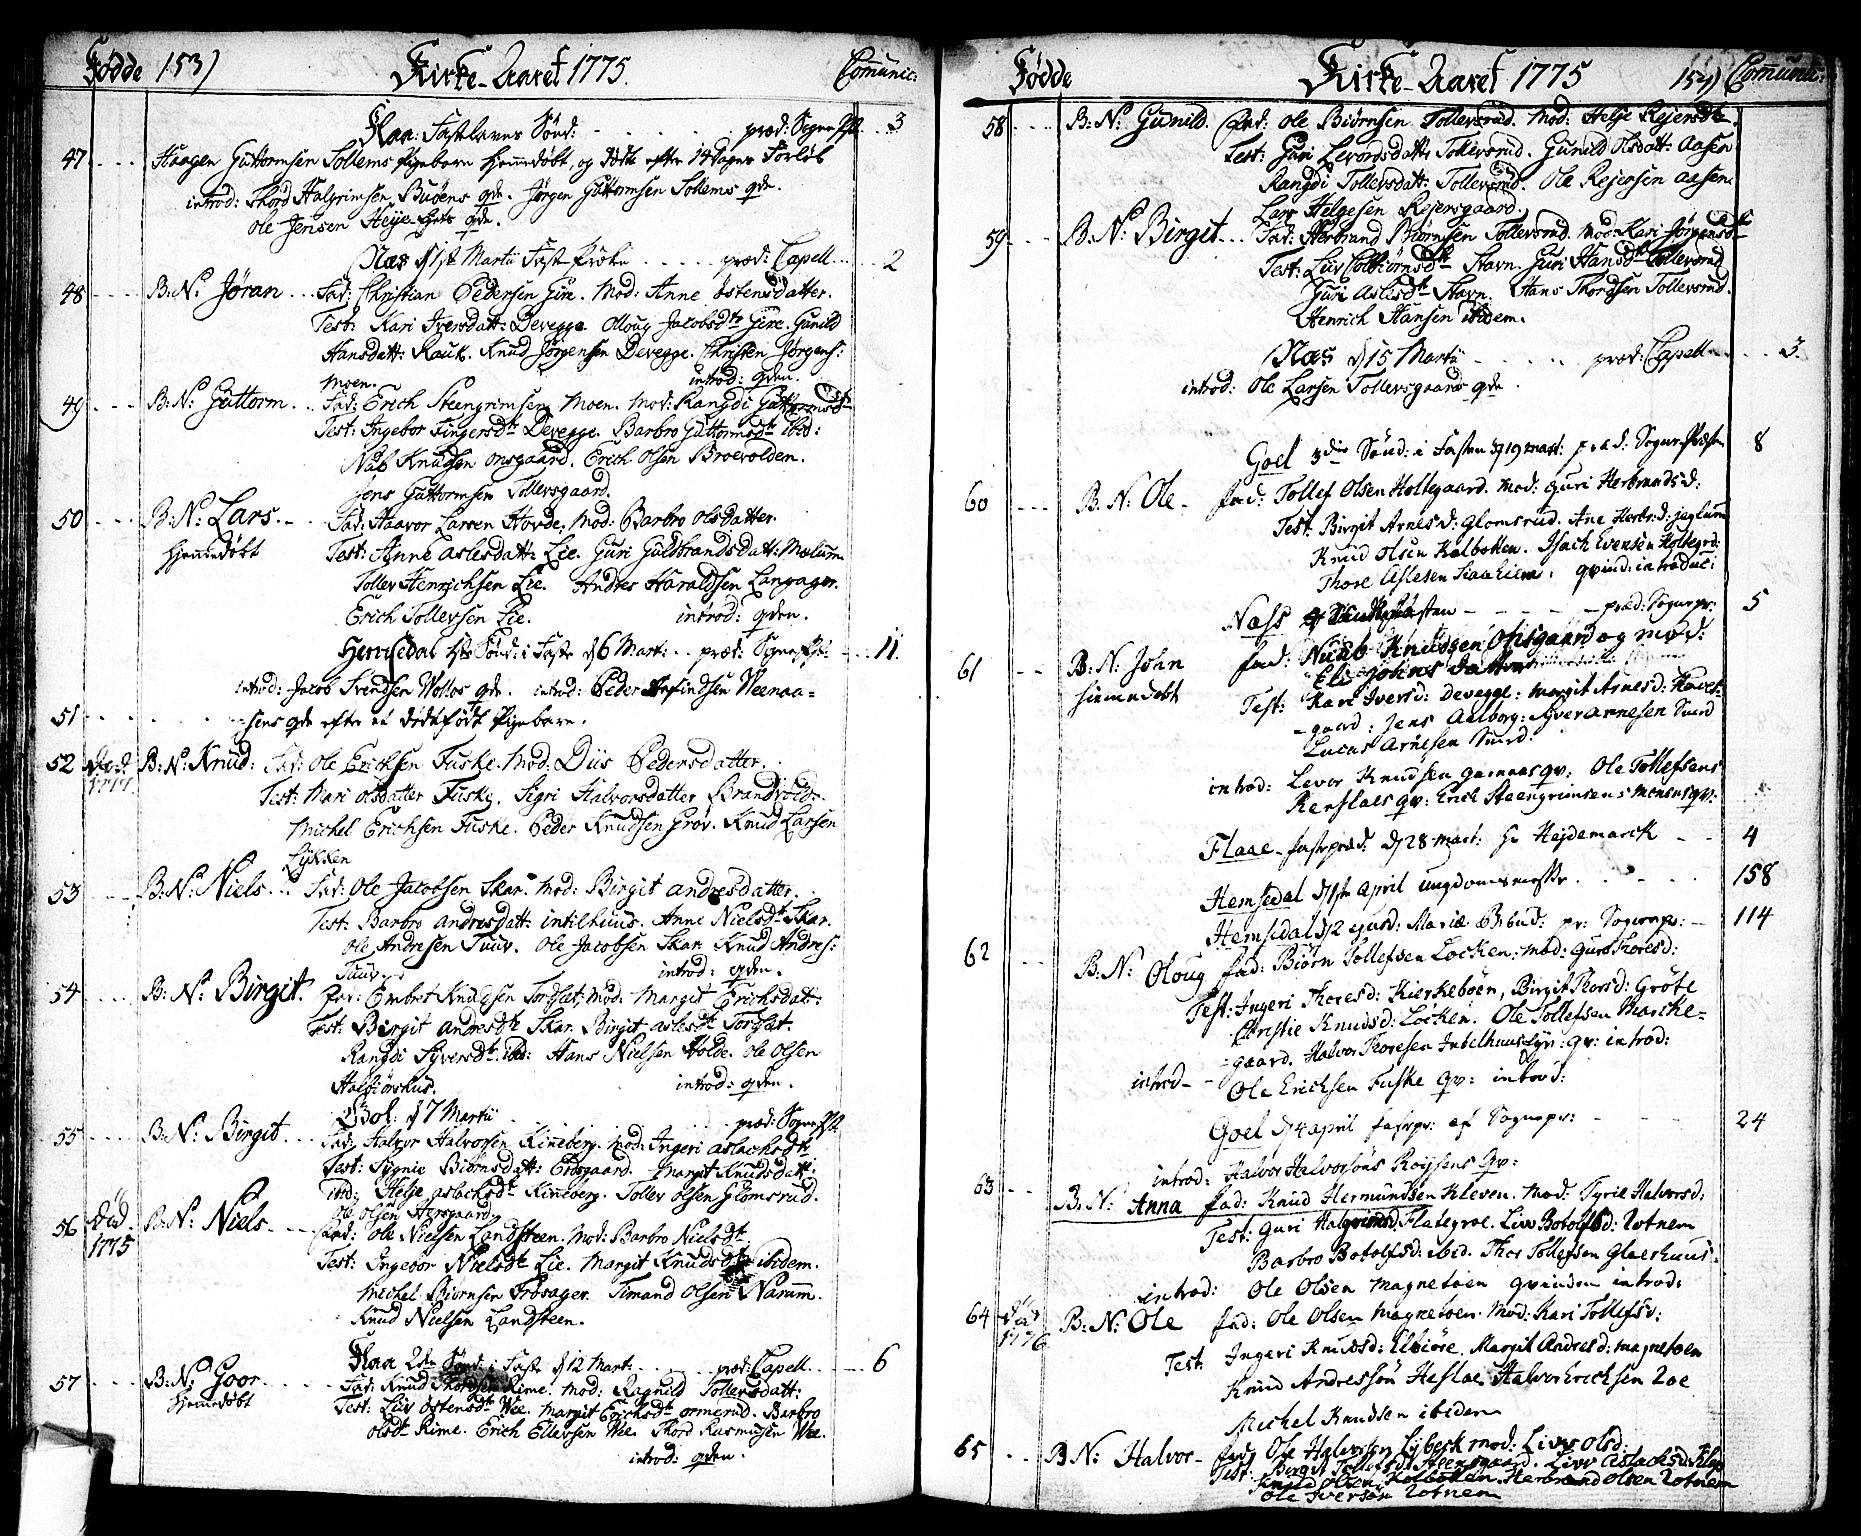 Fødde 153) Kirke-Aaret 1775. Comunic:
Flaa: Fastlavns Sønd: præd: Sogne Pst. 3
47 Haagen Guttormsen Sollems Pigebarn hjemmedøbt, og døde efter 14 Dages Forløb
introd: Thord Halgrimsen Buøens qde. Jørgen Guttormsen Sollems qde.
Ole Jensen Heije qde.
Næs d 1ste Martii Faste præd: Capell. 2
48 B: N: Jøran Fad: Christian Pedersen Gire. Mod: Anne Ostensdatter.
Test: Kari Iversdatt: Devegge. Oloug Jacobsdtr Gire. Gunild
Hansdatt: Rauk. Knud Jørgensen Devegge. Christen Jørgens:
Moen. introd: qden.
49 B: N: Guttorm Fad: Erich Steengrimsen Moen. Mod: Rangdi Guttormsdtr
Test: Ingebor Fingersdtr Devegge. Barbro Guttormsdtr ibid:
Nub Knudsen Onsgaard. Erich Olsen Broevolden.
Jens Guttormsen Tollersgaard.
50 B: N: Lars Fad: Haavor Larsen Hovde. Mod: Barbro Olsdatter.
hjemmedøbt Test: Anne Aslesdatt: Lie. Guri Guldbrandsdatt: Mælum
Tollev Henrichsen Lie. Andres Haraldsen Langager.
Erich Tollevsen Lie. introd: qden.
Hemsedal 1ste Sønd: i Faste d 6 Mart: præd: Sogne Pst: 11
introd: Jacob Svendsen Wollos qde. introd: Peder Veenaa=
51 sens qde efter et dødfødt Pigebarn.
52 død 1777 B: N: Knud: Fad: Ole Erichsen Fuske. Mod: Diis Pedersdatter.
Test: Mari Olsdatter Fuske. Sigri Halvorsdatter Brandvold.
Michel Erichsen Fuske. Peder Knudsen Grøv. Knud Larsen
Lykken
53 B: N: Niels Fad: Ole Jacobsen Skar. Mod: Birgit Andresdatter.
Test: Barbro Andresdatt: intilhuus. Anne Nielsdtr Skar.
Ole Andresen Tuuv. Ole Jacobsen Skar. Knud Andres:
Tuuv introd: qden.
54 B: N: Birgit. Fad: Embret Knudsen Torset. Mod: Margit Erichsdatt:
Test: Birgit Andresdtr Skar. Birgit Aslesdtr Torset.
Rangdi Syversdtr ibid: Hans Nielsen Holde. Ole Olsen
introd: qden.
Gol: d 7 Martii præd: Sogne Pst
55 B: N: Birgit Fad: Halvor Halvorsen Kinneberg. Mod: Ingeri Aslachsdtr
Test: Sygnie Biørnsdatt: Engaard. Margit Knudsdatt:
ibid: Helje Aslachsdtr Kinneberg. Tollev Olsen Glomsrud.
Ole Olsen
56 død 1775 B: N: Niels Fad: Ole Nielsen Landsteen. Mod: Barbro Nielsdtr
Test: Ingebor Nielsdtr Lie. Margit Knudsdtr ibidem.
Michel Biørnsen Frøsager. Timand Olsen Narum.
Knud Nielsen Landsteen.
Flaa 2den Sønd: i Faste d 12 Mart: præd: Capell 6
57 B: N: Goor Fad: Knud Thordsen Rime. Mod: Ragnild Tollevsdatt:
hjemmedøbt Test: Liiv Ostensdtr Wee. Margit Erichsdtr Ormerud. Barbro
Olsdtr Rime. Erich Ellevsen Wee. Thord Rasmusen Wee.
introd: qden.
Fødde Kirke-Aaret 1775 154) Comunic:
58 B: N: Gunild. Fad: Ole Biørnsen Tollevsrud. Mod: Helje Rejersdtr
Test: Guri Levordsdatt: Tollevsrud. Gunild Olsdatt: Aasen
Rangdi Tollevsdatt: Tollevsrud. Ole Rejersen Aasen.
Lars Helgesen Rejersgaard.
59 B: N: Birgit Fad: Herbrand Biørnsen Tollevsrud. Mod: Kari Jørgensdtr
Test: Liiv Colbiørnsdtr Stavn. Guri Hansdtr Tollevsrud
Guri Aslesdtr Stavn. Hans Thordsen Tollevsrud.
Henrich Hansen ibidem.
Næs d 15 Martii præd: Capell 3.
introd: Ole Larsen Tollersgaards qde.
Goel 3die Sønd: i Fasten d 19 Mart: præd: Sogne Præsten 8
60 B. N: Ole fad: Tollef Olsen Holtegaard. Mod: Guri Herbrandsd:
Test: Birgit Arnesd: Glomsrud. Ane Herbr: d: Jeglum
Knud Olsen Kolbotten. Isach Evensen Holtegrd:
Thore Aslesen . qvind: introduc:
Næss præd: Sognepr: 5
61 B: N: John fad: Nuub Knudsen Onsgaard og mod:
hiemedøbt Eli Johnsdatter
Test: Kari Iversd: Devegge: Margit Arnesd:
-gaard: Jens Aalborg: Syver Arnesen Sund
Lucas Arnesen Sund.
introd: Levor Knudsen qv: Ole Tollefsens
qv: Erik Steengrimsens Moens qv:
Flaae fastpræd: d 28 Mart: Hr Hejdemarck 4
Hemsedal d 1ste April ungdomsmøde 158
Hemsedal d 2 ejusd: Mariæ Bebud: pr: Sognepr: 114
62 B: N: Oloug fad: Biørn Tollefsen Locken: Mod: Guro Thoresd:
Test: Ingeri Thoresd: Kierkebøen, Birgit Thorsd: Grøte
Christie Knudsd: Løcken. Ole Tollefsen Marike=
=gaard. Halvor Thoresen qv: introd:
introd Ole Erichsen Fuske qv: introd:
Goel d 4 April fastpr: af Sognepr: 24
introd: Halvor Halvorsøns Røysens qv:
63 B: N: Anna fad: Knud Hermundsen Kleven. Mod: Tyrie Halvorsd:
Test: Guri Halgrimsd: Flategroe. Livv Botolfsd: Rotnem
Barbro Botolfsd: ibid. Thor Tollefsen Glaerhuus.
introd: Ole Olsen Magnetøen qvinden introd:
64 død 1776 B: N: Ole fad: Ole Olsen Magnetoen. Mod: Kari Tollefsd:
Test: Ingeri Knudsd: Ulsiøre. Margit Andresd: Magnetoen
Knud Andressøn Heslae. Halvor Ericksen Loe
Michel Knudsen ibidem
65 B N: Halvor fad: Ole Halvorsen Lybeck mod: Livv Olsd:
Test: Birgit Tollefsd: . Livv Aslacksd:
Knud Olsen Kolbotten. Herbrand Olsen Rotnem
Ole Iversøn Rotnem